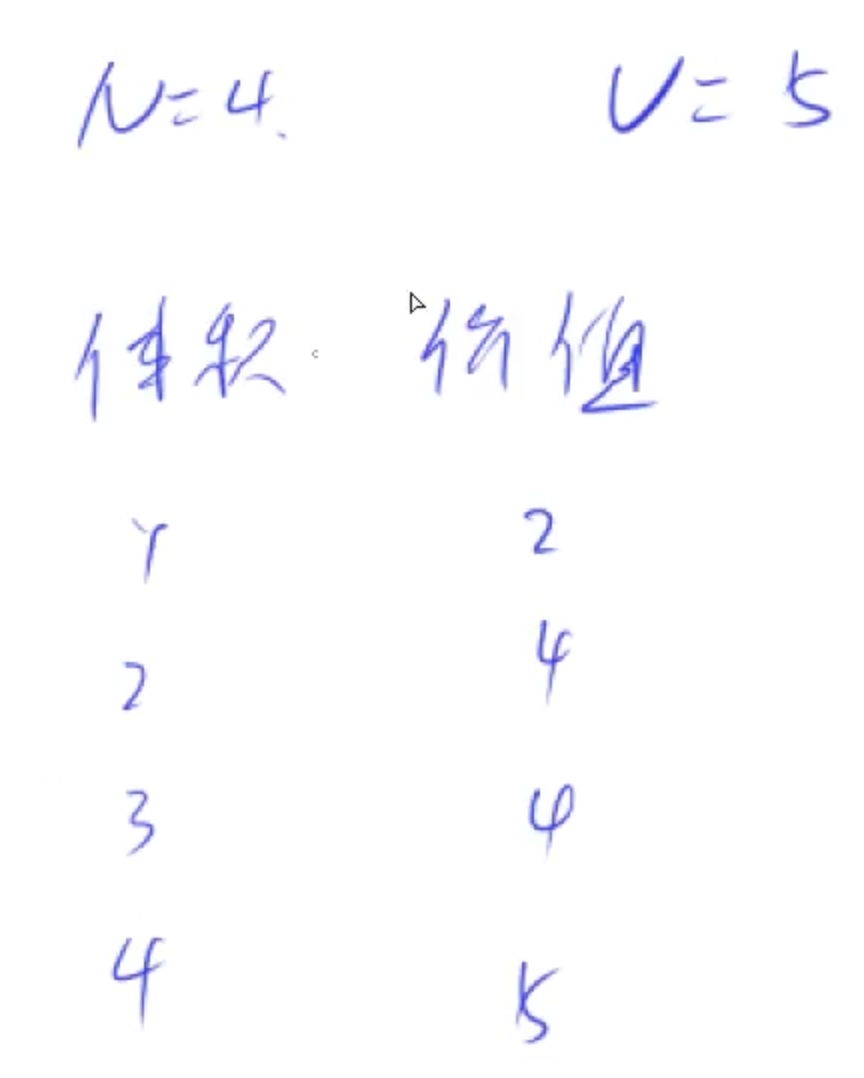 N=4. V=5
体积 价值
1 2
2 4
3 4
4 5